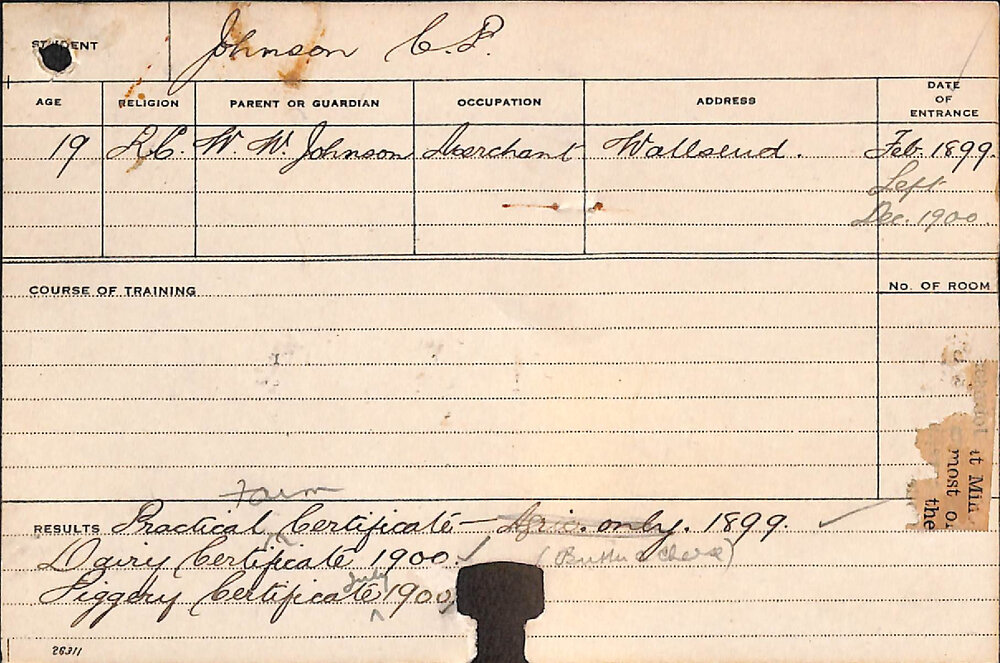 STUDENT Johnson C.P.
AGE RELIGION PARENT OR GUARDIAN OCCUPATION ADDRESS DATE OF ENTRANCE
19 R.C. W. W. Johnson Merchant Wallsend. Feb. 1899.
Left
Dec. 1900
COURSE OF TRAINING No. OF ROOM
it Min
most o
the
Farm
RESULTS Practical Certificate – Agric. only. 1899.
Dairy Certificate 1900. (Butter & cheese)
Piggery Certificate July 1900
26311